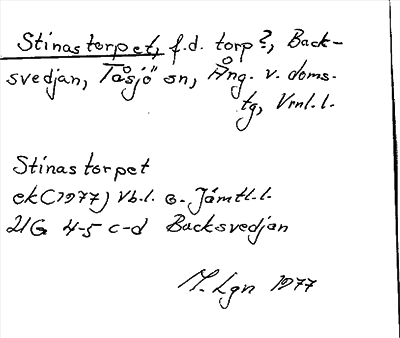 Stinastorpet, f.d. torp?, Back-
svedjan, Tåsjö sn, Ång. v. doms.
tg, Vrnl.l.
Stinastorpet
ek (1977) Vb.l. o. Jämtl.l.
21G 4-5 c-d Backsvedjan
M. Lgn 1977